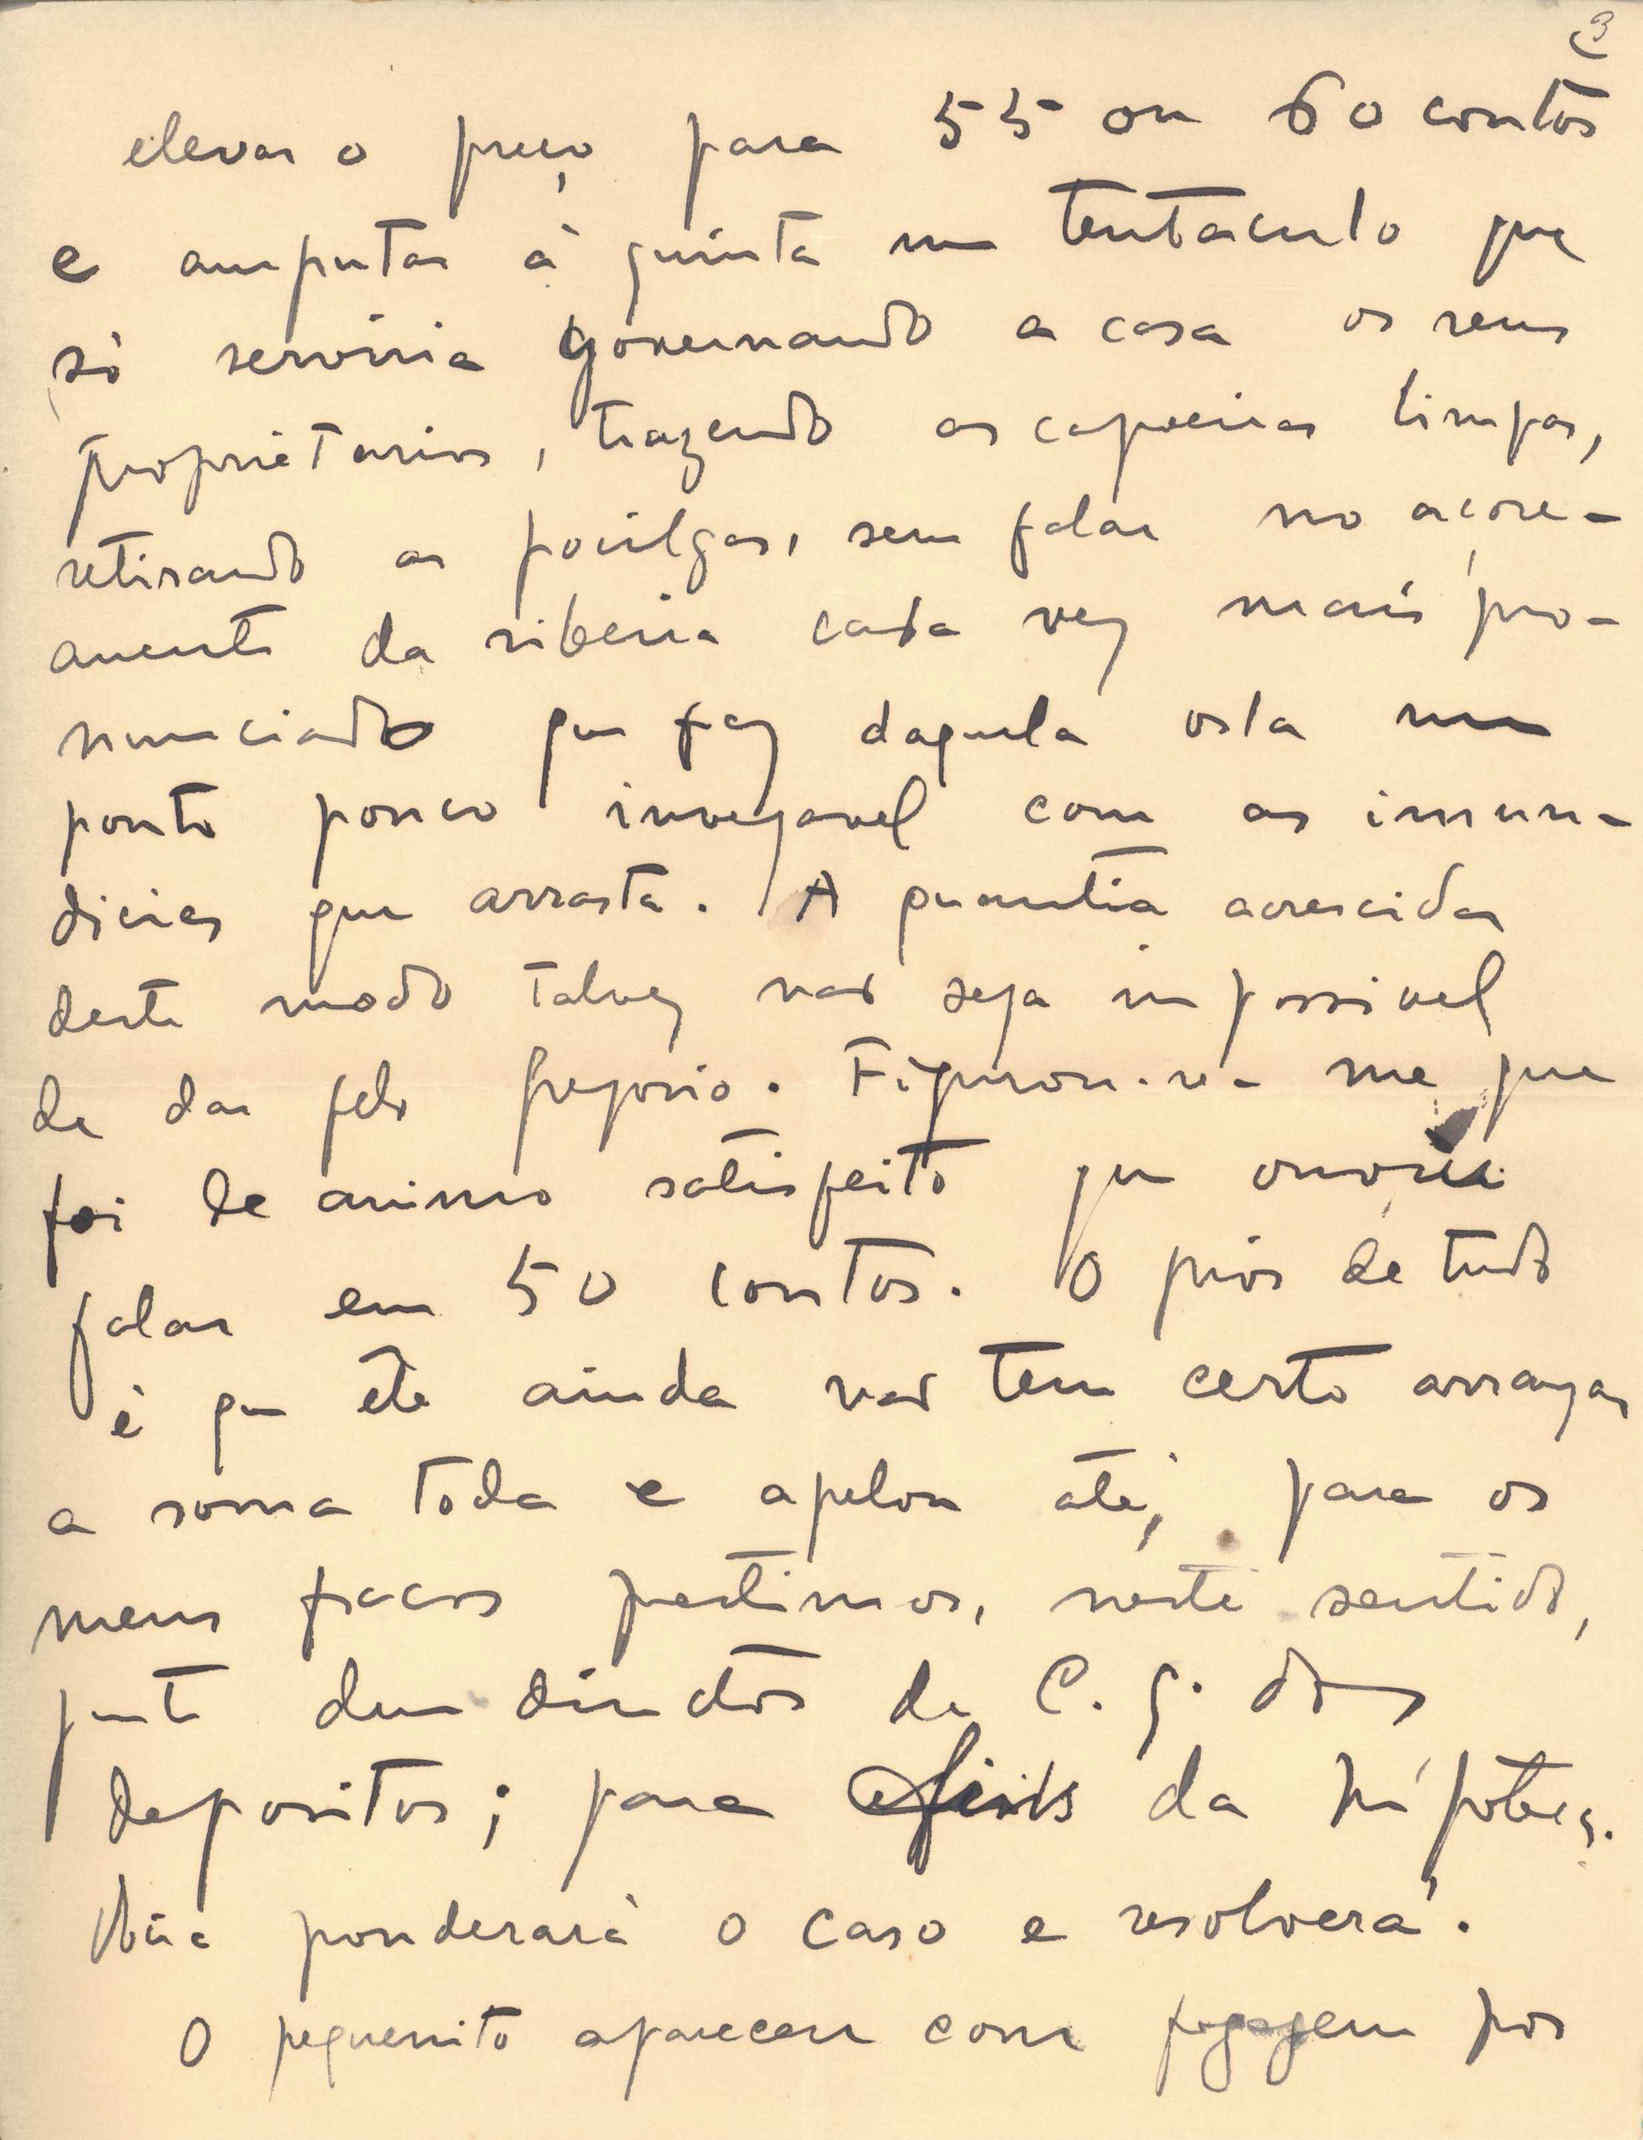 3
elevar o preço para 55 ou 60 contos
e amputar à quinta um tentaculo que
só serviria governando a casa os seus
proprietarios, trazendo as capoeiras limpas,
retirando as pocilgas, sem falar no açore-
amento da ribeira cada vez mais pro-
nunciado que faz daquela orla um
ponto pouco invejavel com as imun-
dicies que arrasta. A quantia acrescida
deste modo talvez não seja impossivel
de dar pelo Gregorio. Figurou-se-me que
foi de animo satisfeito que ouviu
falar em 50 contos. O piór de tudo
é que êle ainda não tem certo arranjar
a soma toda e apelou até, para os
meus fracos prestimos, neste sentido,
junto dum diretor da C. G. dos
depositos; para efeitos da hipoteca.
Mãe ponderará o caso e resolverá.
O pequenito apareceu com fogagem por